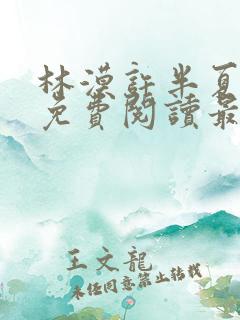 林漠許半夏
免費閱讀最
王文龍
未经同意禁止转载